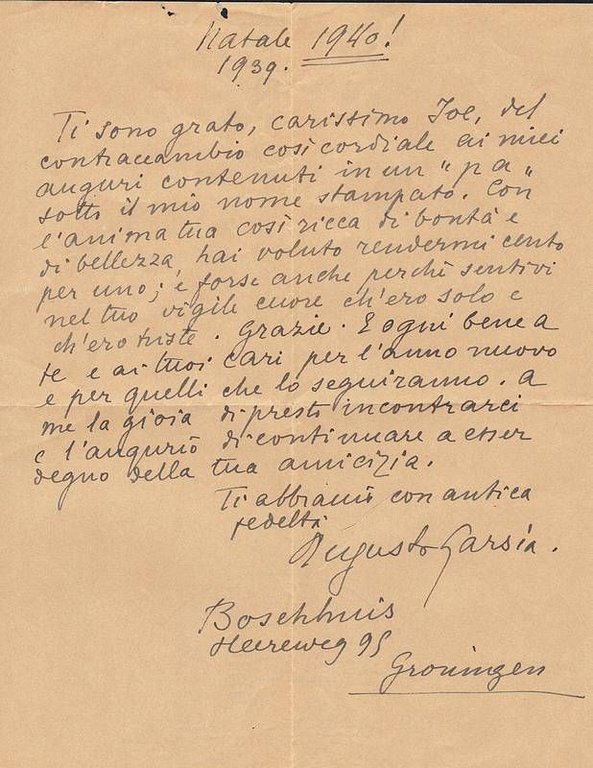 Natale 1940!
1939.
Ti sono grato, carissimo Joe, del
contraccambio così cordiale ai miei
auguri contenuti in un "pa"
sotto il mio nome stampato. Con
l'anima tua così ricca di bontà e
di bellezza, hai voluto rendermi cento
per uno; e forse anche perchè sentivi
nel tuo vigile cuore ch'ero solo e
ch'ero triste. Grazie. E ogni bene a
te e ai tuoi cari per l'anno nuovo
e per quelli che lo seguiranno. A
me la gioia di presto incontrarci
e l'augurio di continuare a esser
degno della tua amicizia.
Ti abbraccio con antica
fedeltà
Augusto Garsia.
Boschhuis
Heereweg 95
Groningen